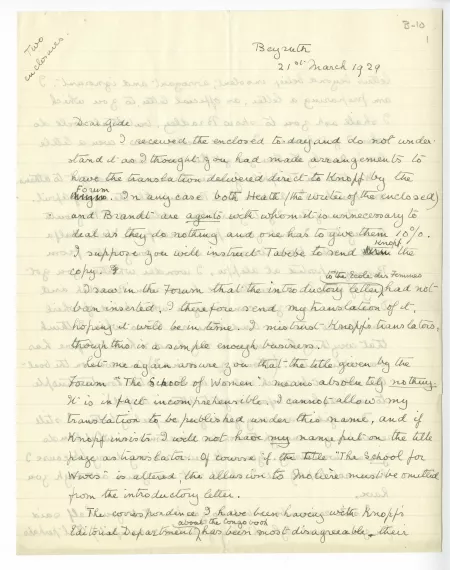 B-10
1
Two
enclosures.
Beyrouth
21st March 1929
Dear Gide
I received the enclosed to-day and do not under-
stand it as I thought you had made arrangements to
have the translation delivered direct to Knopf by the
Forum
In any case both Heath (the writer of the enclosed)
and Brandt are agents with whom it is unnecessary to
deal as they do nothing and one has to give them 10%.
I suppose you will instruct Tabese to send Knopf the
copy.
I saw in the Forum that the introductory letter to the Ecole des Femmes had not
been inserted. I therefore send my translation of it,
hoping it will be in time. I mistrust Knopf's translators,
though this is a simple enough business.
Let me again assure you that the title given by the
Forum "The School of Women" means absolutely nothing.
It is in fact incomprehensible. I cannot allow my
translation to be published under this name, and if
Knopf insists I will not have my name put on the title
page as translator. Of course if the title "The School for
Wives" is altered, the allusion to Molière must be omitted
from the introductory letter.
The correspondence I have been having with Knopf's
Editorial Department about the Congo book has been most disagreeable & their